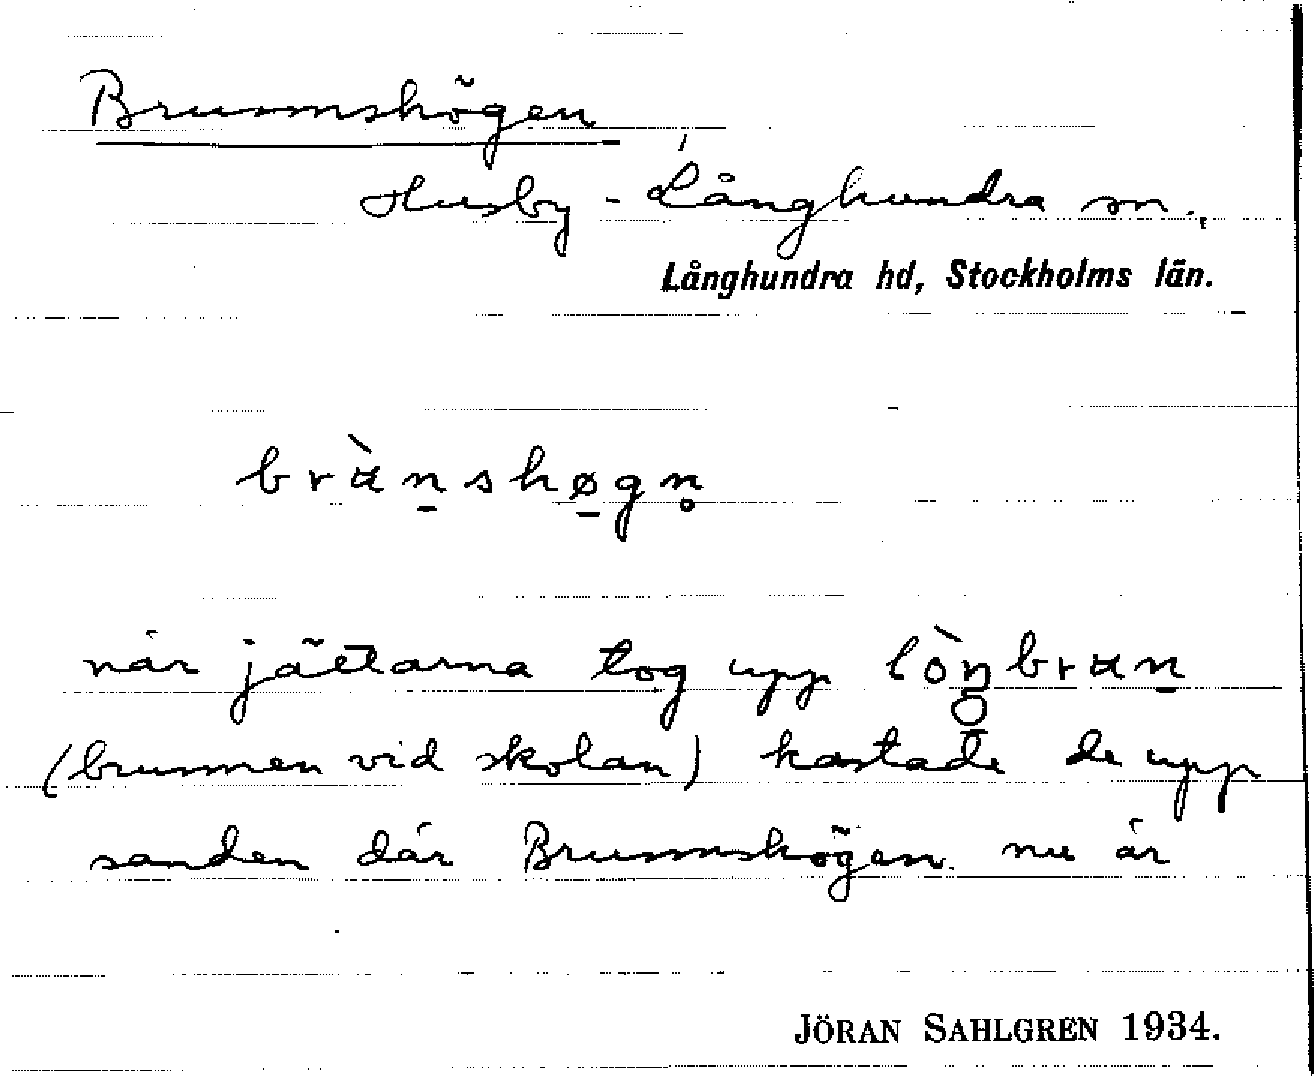 Brunnshögen
Husby-Långhundra sn.,
Långhundra hd, Stockholms län.
brὰn̠shø̠gn̥
när jättarna tog upp lòŋ̠bran̠
(brunnen vid skolan) kastade de upp
sanden där Brunnshögen nu är
JÖRAN SAHLGREN 1934.